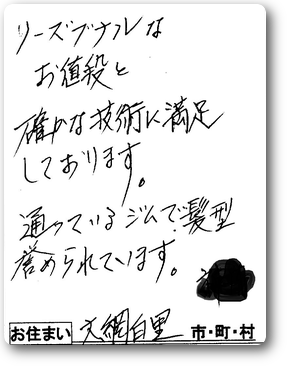 リーズブナルな
お値段と
確かな技術に満足
しております。
通っているジムで髪型
誉められています。
お住まい 大網白里 市・町・村